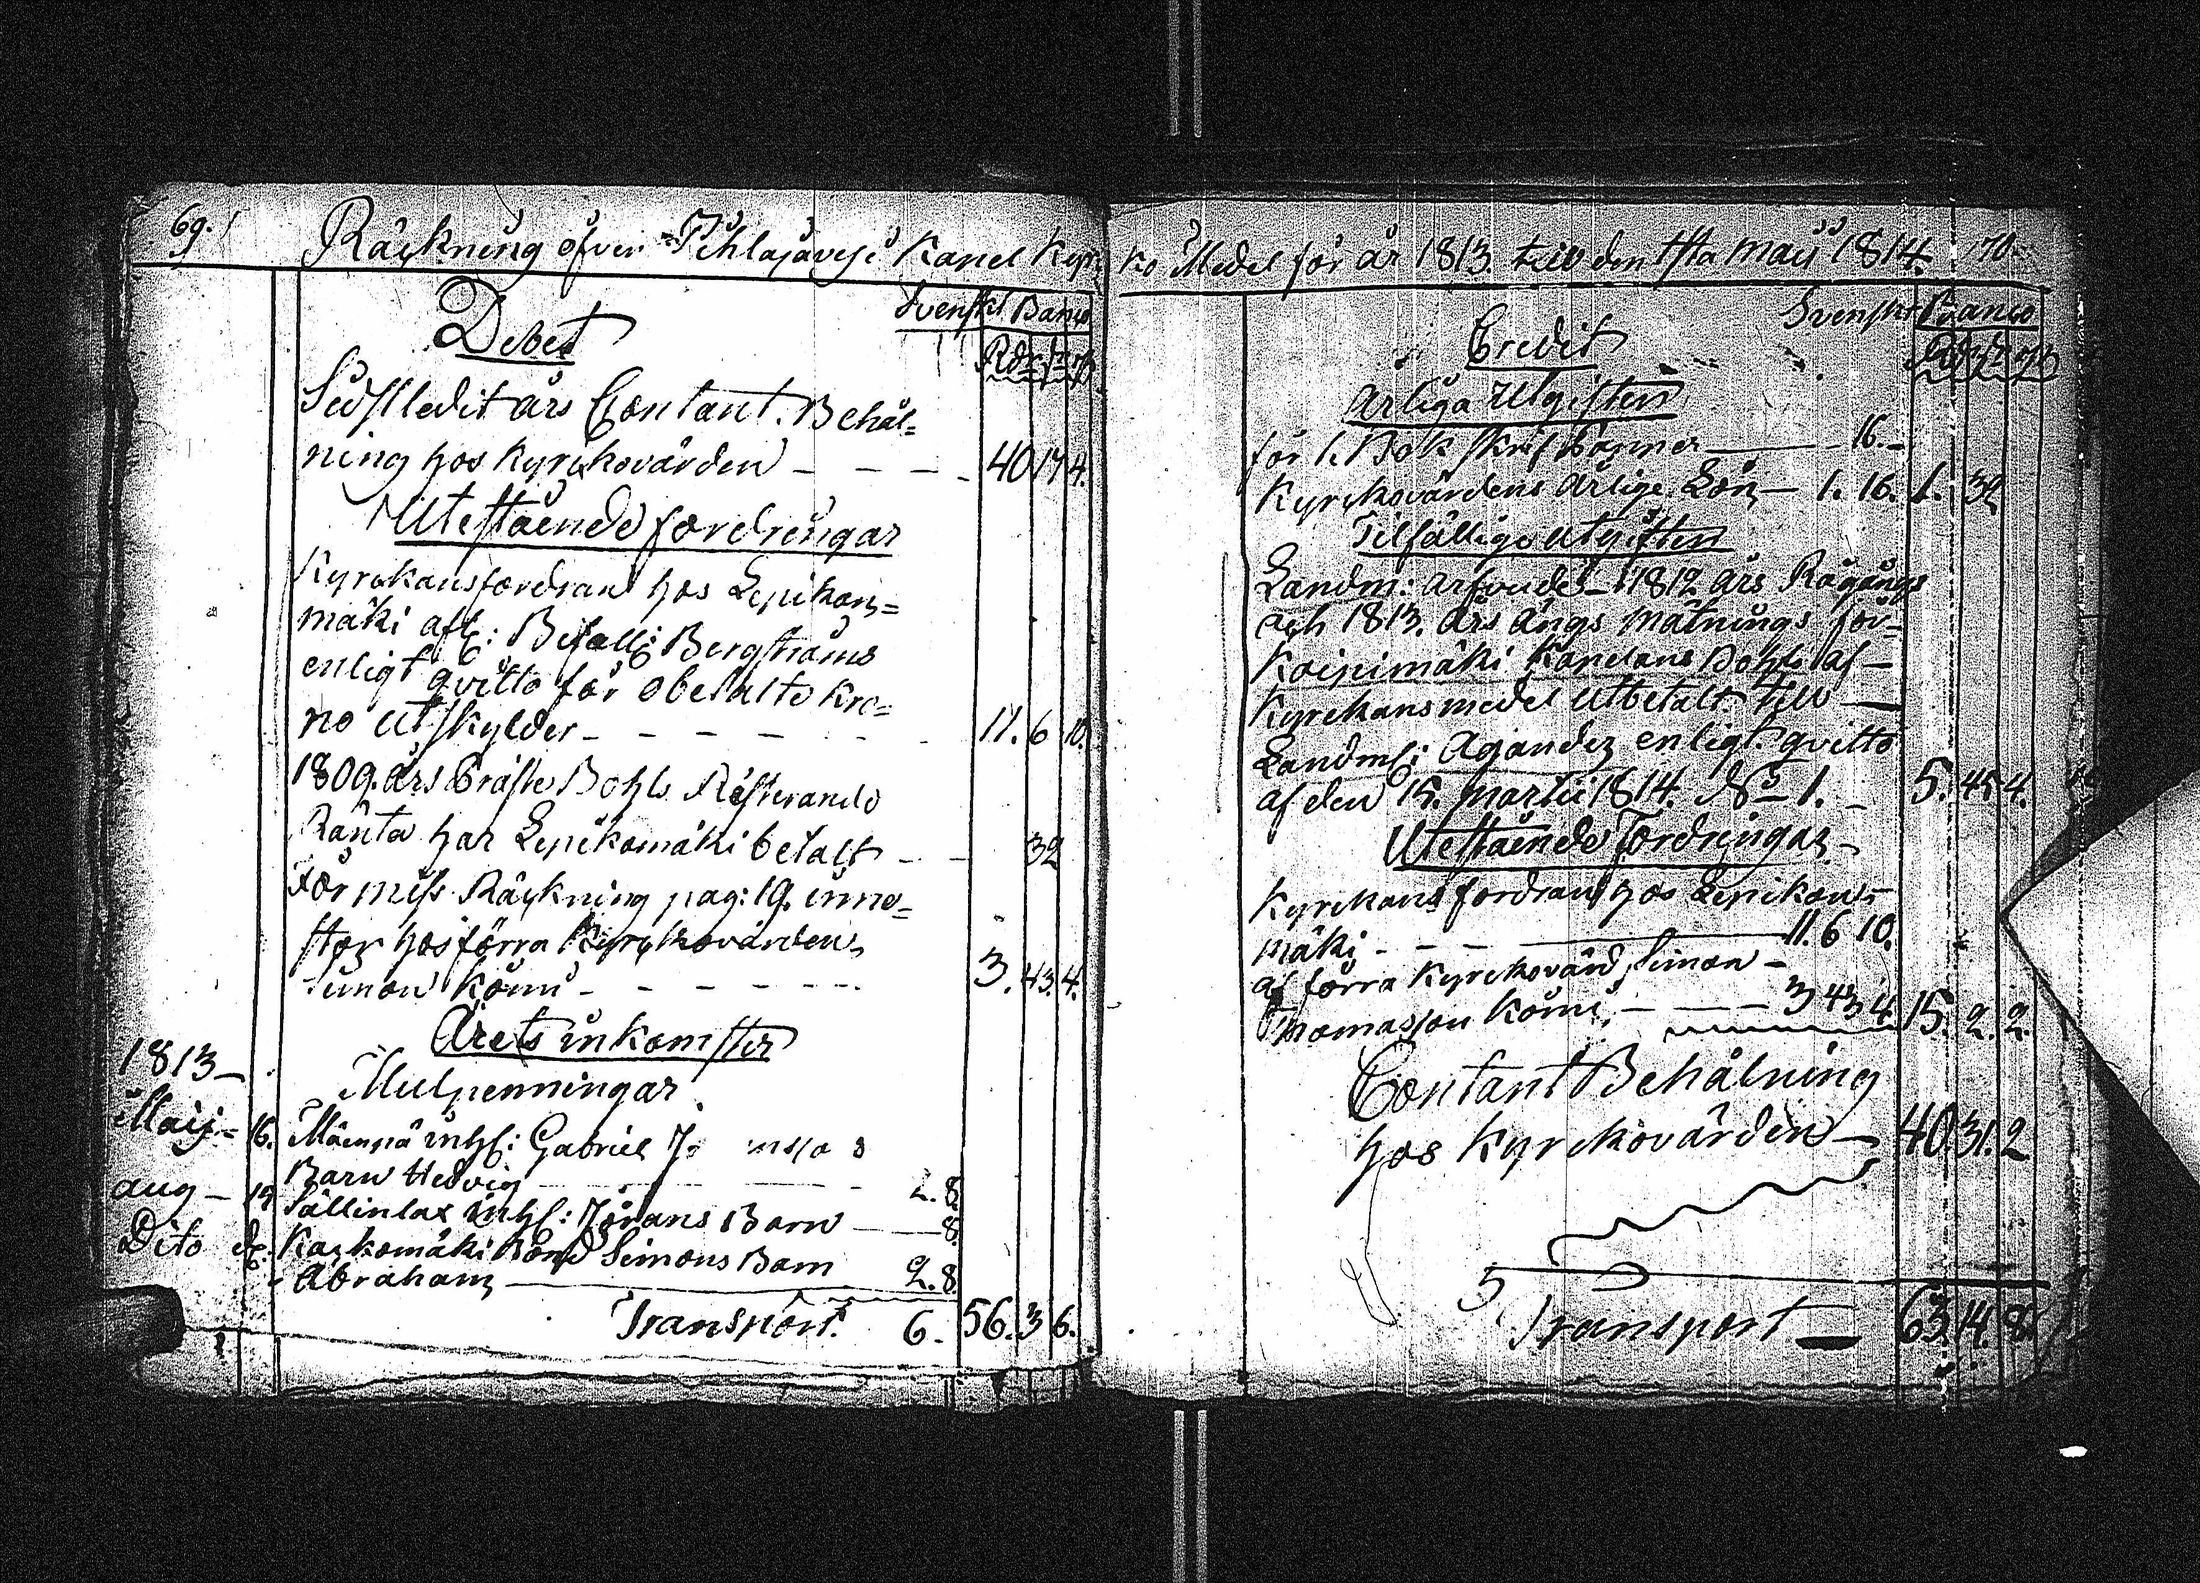 69.
Räckning öfver Pihlajavesi Kapel Kyr-
Debet
Svenskt Banco
Rdr sk rst
Sidstledit års Contant Behål=
ning hos Kyrckovärden - - - - 40 17 4.
Utestående fordringar
Kyrckans fordran hos Lepikon=
mäki afl: Befallg: Bergströms
enligt qvitto för obetalte Kro=
no Utskylder - - - - - 11. 6 10.
1809. års Präste Bohls Resterande
Ränta har Lepikomäki betalt - - 32
För miss Räckning pag: 19. inne=
står hos förra Kyrckovärden
Simon Kömi - - - - - 3. 43. 4.
Årets inkomster
1813 -
Mulpenningar
Maij - 16. Mäenpä inhs: Gabriel
Barn Hedvig - - - - 2. 8.
aug - 15 Sällinlax inhs: Jörans Barn - 8.
Dito Kaskomäki Bond Simons Barn
Abraham - 2. 8
Transport. 6. 56. 3 6.
ko Medel för år 1813. till den 1sta Maii 1814. 70.
Credit
Svenskt Banco
Rdr sk rst
Årliga Utgifter
för 1. Bok Skrif Papper - 16. -
Kyrckovärdens årlige Lön - 1. 16. 1. 32
Tilfällige Utgifter
Landm: arfvode - 1812 års Rågångs
och 1813. års ängs Mätnings för-
Koipimäki Kapelans Bohl af -
Kyrckans medel Utbetalt till -
Landms: Agander enligt qvitto
af den 15. Martii 1814. No 1. - 5. 45 4.
Utestående Fordringar -
Kyrckans fordran hos Lepikon-
mäki - - - 11. 6 10.
af förra Kyrckovärd Simon -
Thomasson Kömi - - 3 43 4 15. 2. 2.
Contant Behålning
hos Kyrckovärden - 40. 31. 2
Transport - 63. 14. 8.